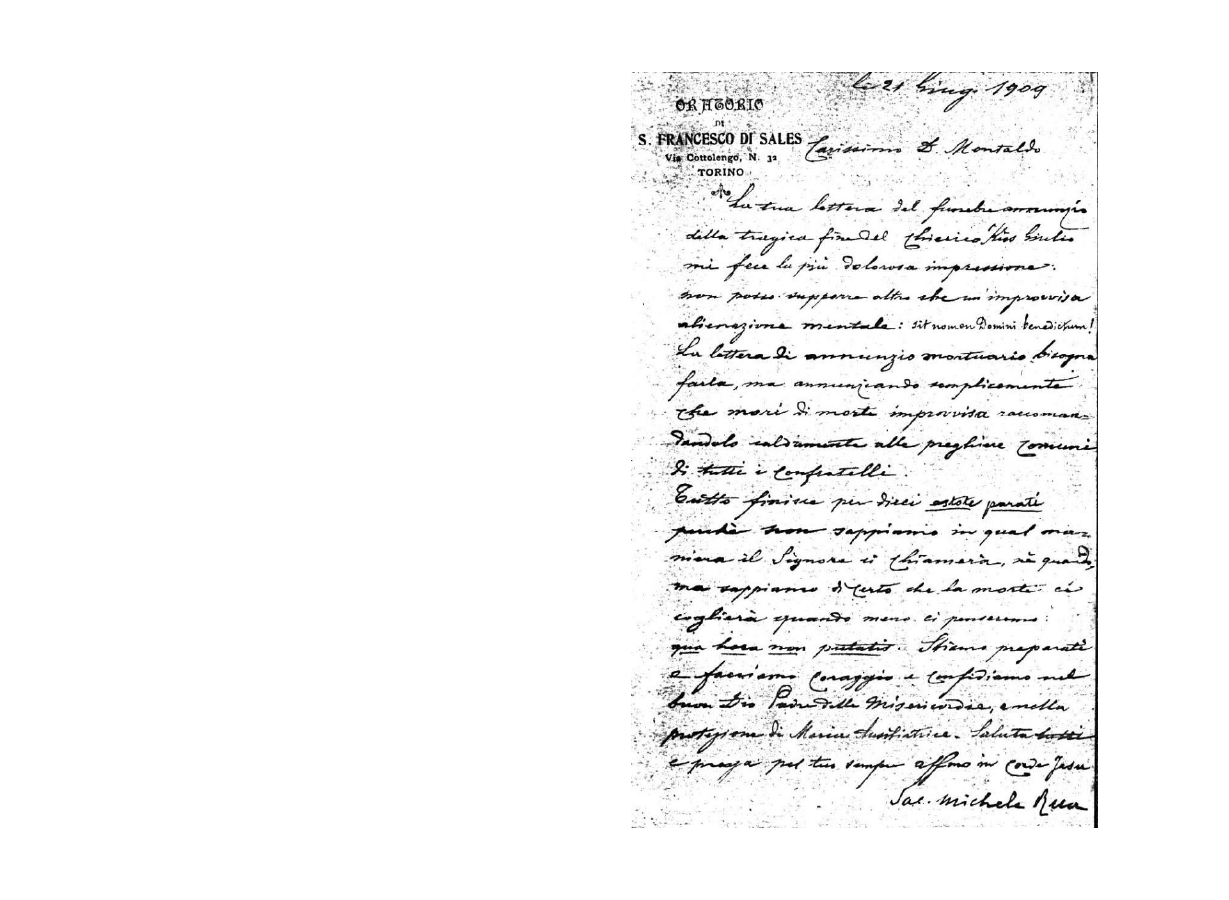 le 21 Giug. 1909
ORATORIO
DI
S. FRANCESCO DI SALES
Via Cottolengo, N. 32
TORINO
Carissimo D. Montaldo
La tua lettera del funebre annunzio
della tragica fine del Chierico Kiss Giulio
mi fece la più dolorosa impressione:
non posso supporre altro che un'improvvisa
alienazione mentale: sit nomen Domini benedictum!
La lettera di annunzio mortuario bisogna
farla, ma annunziando semplicemente
che morì di morte improvvisa raccoman=
dandolo caldamente alle preghiere comuni
di tutti i Confratelli.
Tutto finisce per dirci estote parati
perchè non sappiamo in qual ma=
niera il Signore ci chiamerà, nè quando,
ma sappiamo di certo che la morte ci
coglierà quando meno ci penseremo:
qua hora non putatis. Stiamo preparati
e facciamo coraggio e confidiamo nel
buon Dio Padre delle Misericordie, e nella
protezione di Maria Ausiliatrice. Saluta tutti
e prega pel tuo sempre affmo in Corde Jesu
Sac. Michele Rua